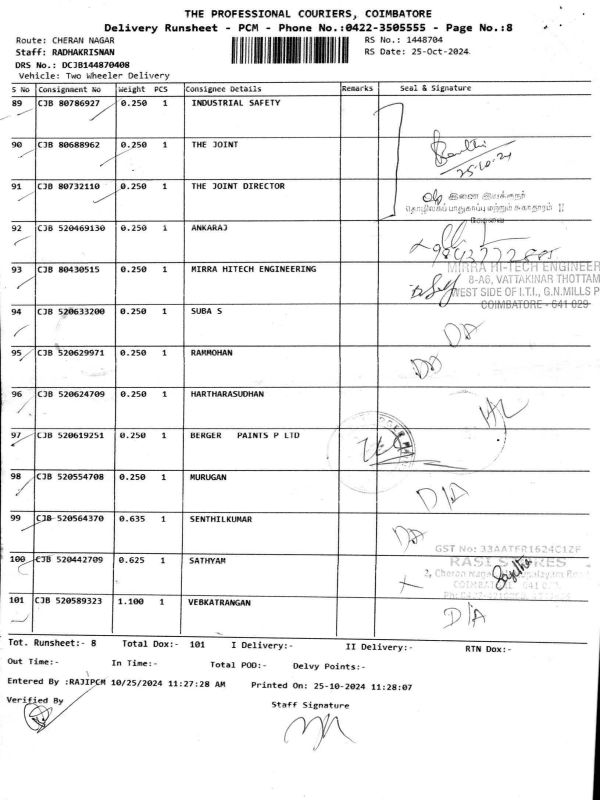 THE PROFESSIONAL COURIERS, COIMBATORE
Delivery Runsheet - PCM - Phone No.:0422-3505555 - Page No.:8
Route: CHERAN NAGAR RS No.: 1448704
Staff: RADHAKRISNAN RS Date: 25-Oct-2024
DRS No.: DCJB144870408
Vehicle: Two Wheeler Delivery
S No Consignment No Weight PCS Consignee Details Remarks Seal & Signature
89 CJB 80786927 0.250 1 INDUSTRIAL SAFETY
90 CJB 80688962 0.250 1 THE JOINT
25-10-24
91 CJB 80732110 0.250 1 THE JOINT DIRECTOR
இணை இயக்குநர்
தொழிலகப் பாதுகாப்பு மற்றும் சுகாதாரம் II
கோவை
92 CJB 520469130 0.250 1 ANKARAJ
93 CJB 80430515 0.250 1 MIRRA HITECH ENGINEERING
MIRRA HI-TECH ENGINEER
8-A6, VATTAKINAR THOTTAM
WEST SIDE OF I.T.I., G.N.MILLS P
COIMBATORE - 641 029
94 CJB 520633200 0.250 1 SUBA S
95 CJB 520629971 0.250 1 RAMMOHAN
96 CJB 520624709 0.250 1 HARTHARASUDHAN
97 CJB 520619251 0.250 1 BERGER PAINTS P LTD
98 CJB 520554708 0.250 1 MURUGAN D/A
99 CJB 520564370 0.635 1 SENTHILKUMAR
GST No: 33AATFR1624C1ZF
100 CJB 520442709 0.625 1 SATHYAM
RASI STORES
2, Cheran Nagar
101 CJB 520589323 1.100 1 VEBKATRANGAN D/A
Tot. Runsheet:- 8 Total Dox:- 101 I Delivery:- II Delivery:- RTN Dox:-
Out Time:- In Time:- Total POD:- Delvy Points:-
Entered By :RAJIPCM 10/25/2024 11:27:28 AM Printed On: 25-10-2024 11:28:07
Verified By
Staff Signature